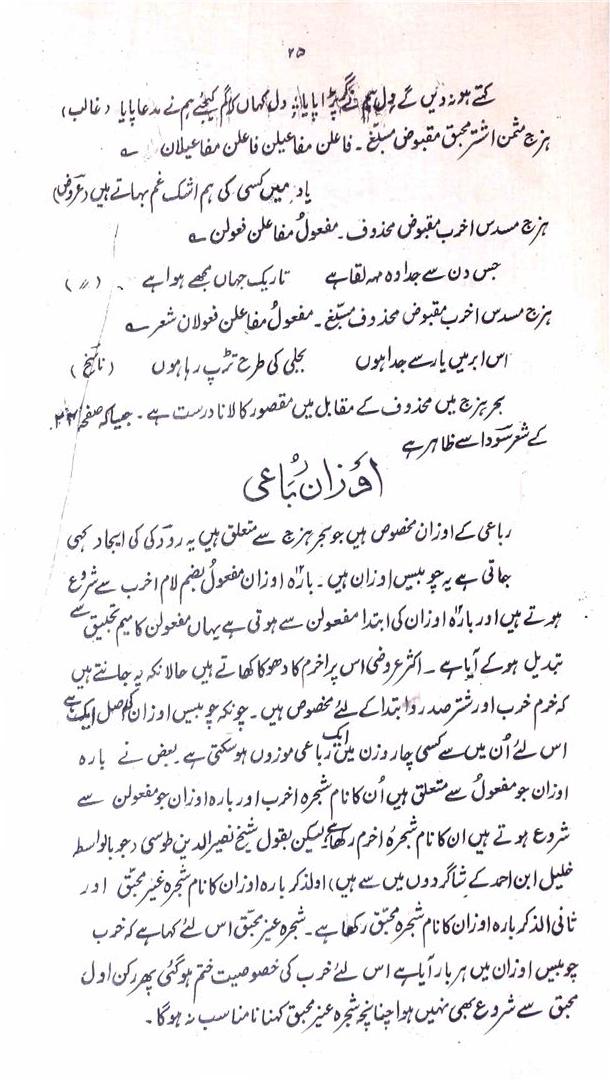 ۲۵
کہتے ہو نہ دیں گے ہم دل اگر پڑا پایا دل کہاں کہ گم کیجئے ہم نے مدعا پایا (غالب)
ہزج مثمن اشتر مخبق مقبوض مسبّغ ۔ فاعلن مفاعیلن فاعلن مفاعیلان ؎
یاد میں کسی کی ہم اشک غم بہاتے ہیں (عروض)
ہزج مسدس اخرب مقبوض محذوف ۔ مفعولُ مفاعلن فعولن ؎
جس دن سے جدا وہ مہ لقا ہے تاریک جہاں مجھے ہوا ہے (〃)
ہزج مسدس اخرب مقبوض محذوف مسبّغ ۔ مفعولُ مفاعلن فعولان شعر ؎
اس ابر میں یار سے جدا ہوں بجلی کی طرح تڑپ رہا ہوں (ناسخ)
بحر ہزج میں محذوف کے مقابل میں مقصور کا لانا درست ہے ۔ جیسا کہ صفحہ
کے شعر سودا سے ظاہر ہے
اوزان رُباعی
رباعی کے اوزان مخصوص ہیں جو بحر ہزج سے متعلق ہیں یہ رودکی کی ایجاد کہی
جاتی ہے یہ چوبیس اوزان ہیں ۔ بارہ اوزان مفعولُ بضم لام اخرب سے شروع
ہوتے ہیں اور بارہ اوزان کی ابتدا مفعولن سے ہوتی ہے یہاں مفعولن کا میم تخبیق سے
تبدیل ہو کے آیا ہے ۔ اکثر عروضی اس پر اخرم کا دھوکا کھاتے ہیں حالانکہ یہ جانتے ہیں
کہ خرم خرب اور شتر صدر و ابتدا کے لئے مخصوص ہیں ۔ چونکہ چوبیس اوزان کا اصل ایک ہے
اس لئے اُن میں سے کسی چار وزن میں ایک رباعی موزوں ہو سکتی ہے بعض نے بارہ
اوزان جو مفعولُ سے متعلق ہیں اُن کا نام شجرہ اخرب اور بارہ اوزان جو مفعولن سے
شروع ہوتے ہیں ان کا نام شجرۂ اخرم رکھا ہے لیکن بقول شیخ نصیر الدین طوسی (جو بالواسطہ
خلیل ابن احمد کے شاگردوں میں سے ہیں) اولذکر بارہ اوزان کا نام شجرہ غیر مخبّق اور
ثانی الذکر بارہ اوزان کا نام شجرہ مخبّق رکھا ہے ۔ شجرہ غیر مخبّق اس لئے کہا ہے کہ خرب
چوبیس اوزان میں ہر بار آیا ہے اس لئے خرب کی خصوصیت ختم ہو گئی پھر رکن اول
مخبق سے شروع بھی نہیں ہوا چنانچہ شجرہ غیر مخبق کہنا نامناسب نہ ہوگا ۔